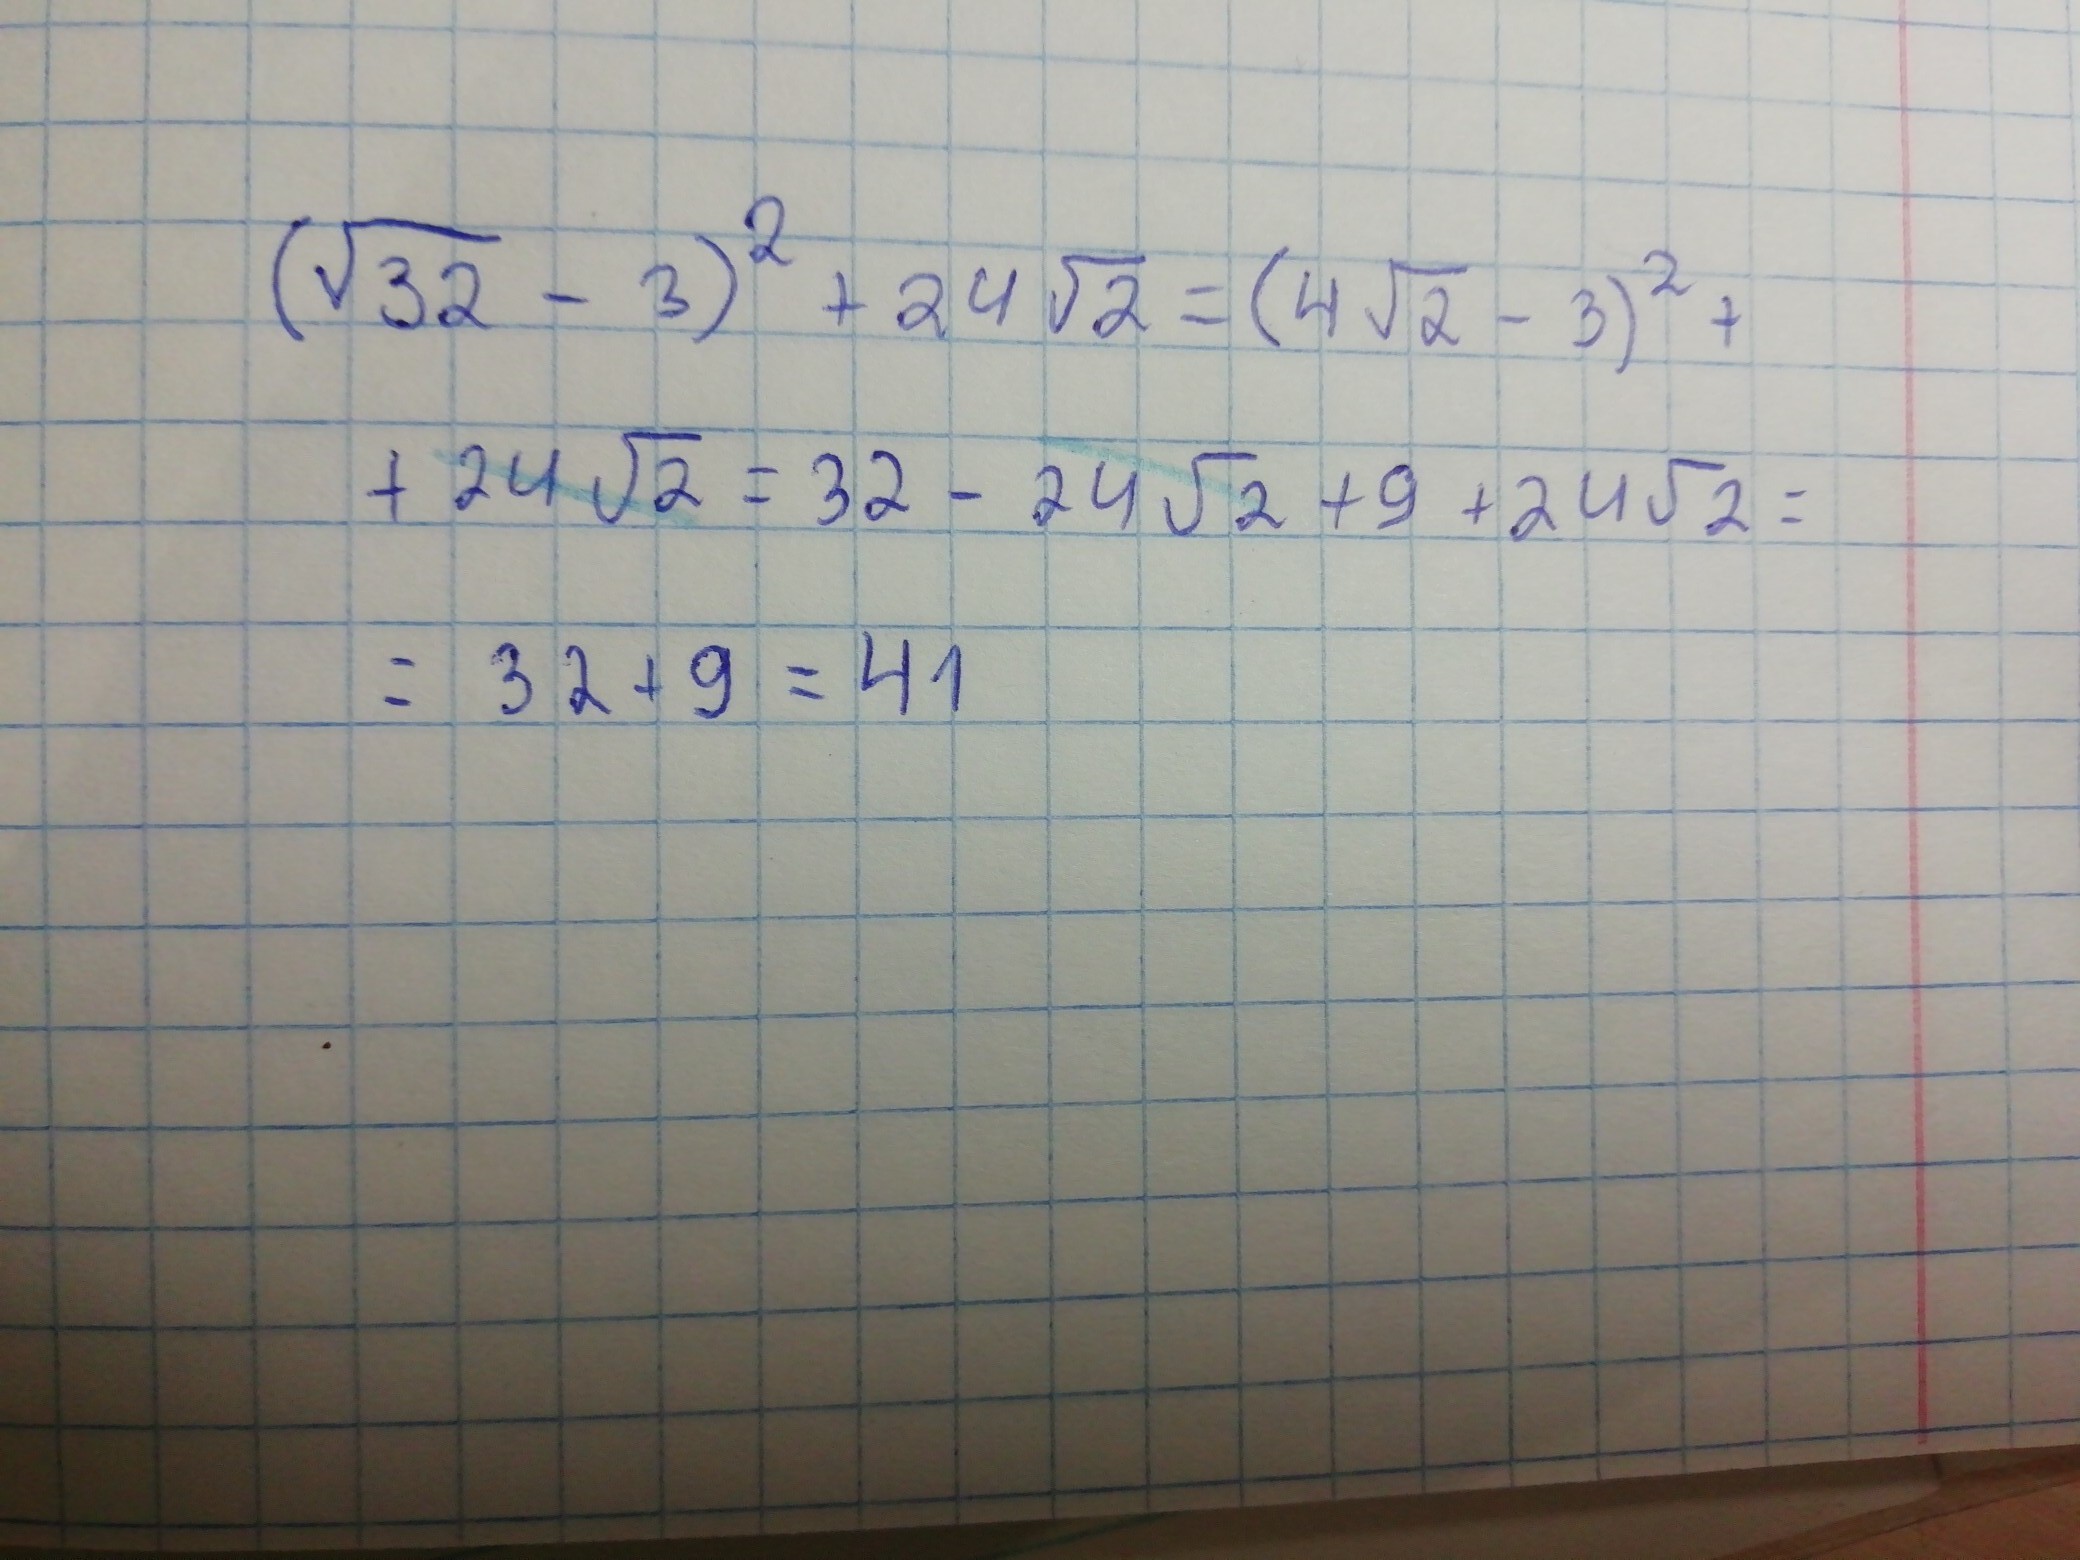 (√32 - 3)² + 24√2 = (4√2 - 3)² +
+ 24√2 = 32 - 24√2 + 9 + 24√2 =
= 32 + 9 = 41